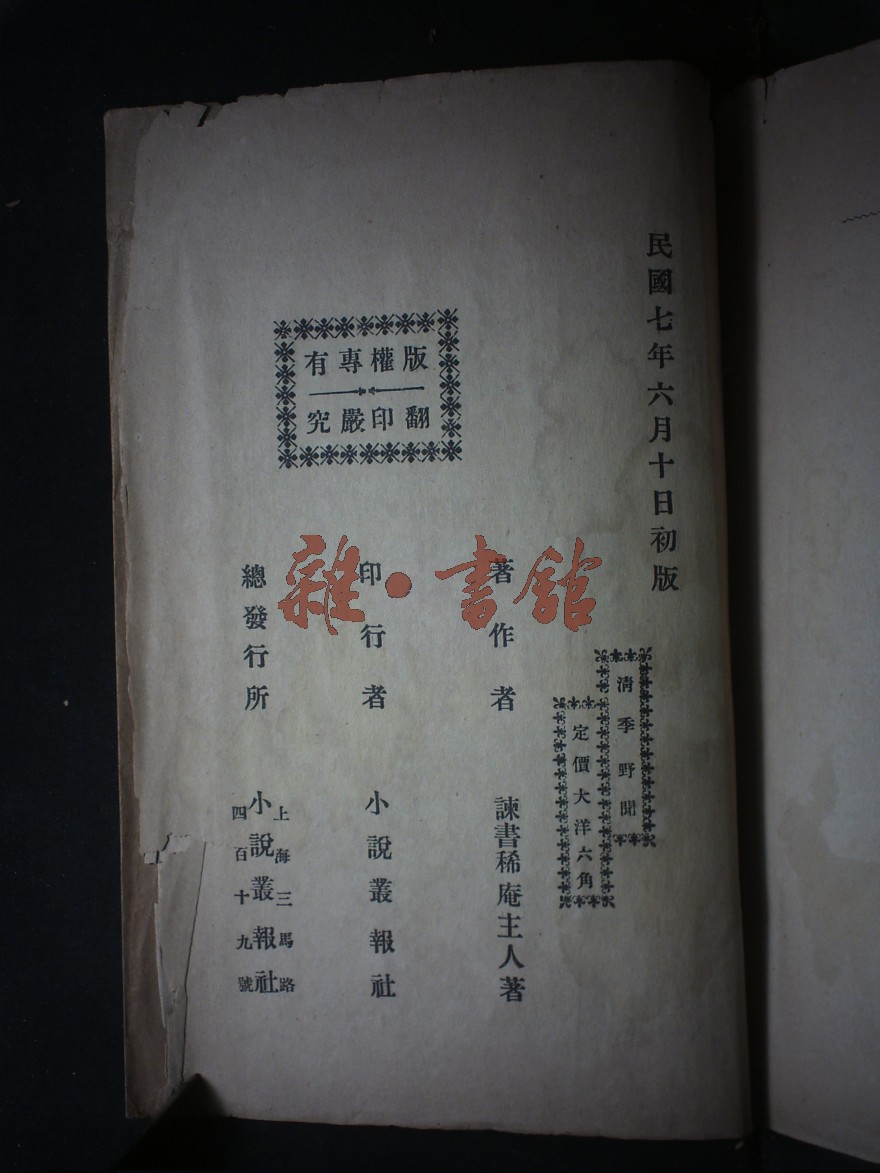 民國七年六月十日初版
清季野聞
定價大洋六角
版權專有
翻印嚴究
著作者 諫書稀庵主人著
印行者 小說叢報社
總發行所 小說叢報社
上海三馬路
四百十九號
雜·書館